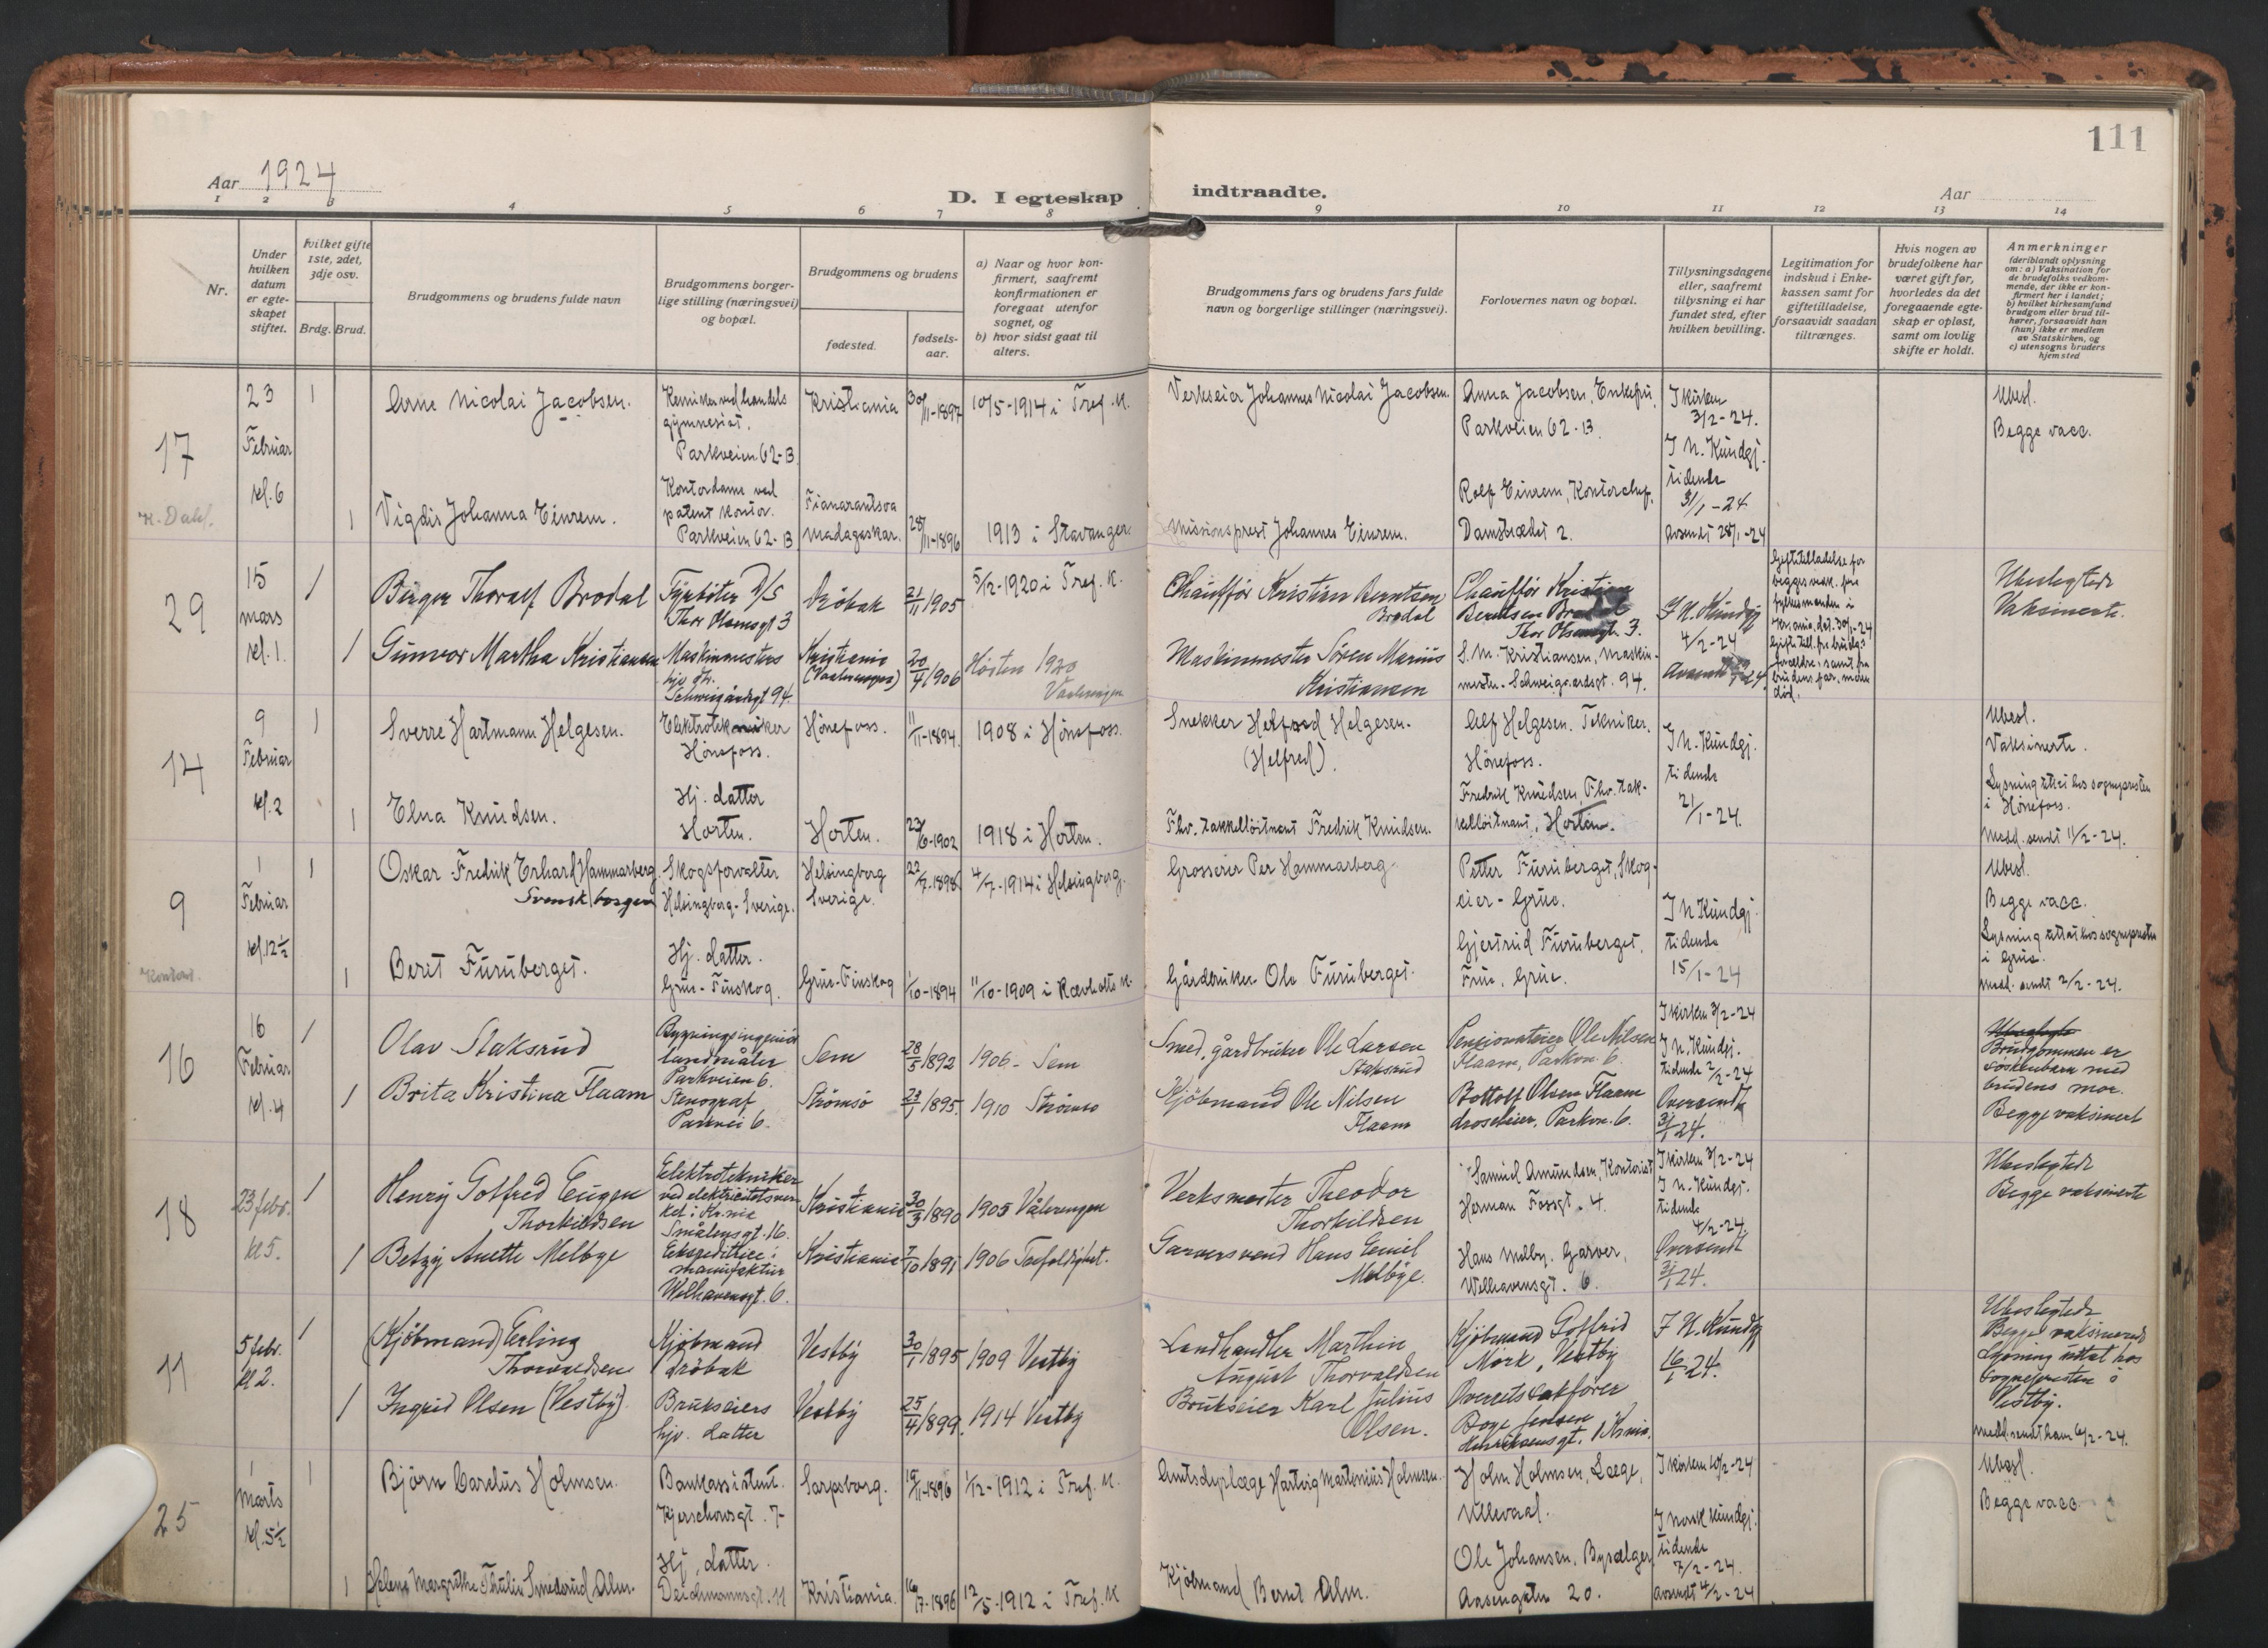 111
Aar 1924
D. I egteskap indtraadte.
Aar
1 2 3 4 5 6 7 8 9 10 11 12 13 14
Nr.
Under hvilken datum er egte-skapet stiftet.
hvilket gifte 1ste, 2det, 3dje osv.
Brdg. Brud.
Brudgommens og brudens fulde navn
Brudgommens borger-lige stilling (næringsvei) og bopæl.
Brudgommens og brudens
fødested.
fødsels-aar.
a) Naar og hvor kon-firmert, saafremt konfirmationen er foregaat utenfor sognet, og
b) hvor sidst gaat til alters.
Brudgommens fars og brudens fars fulde navn og borgerlige stillinger (næringsvei).
Forlovernes navn og bopæl.
Tillysningsdagene eller, saafremt tillysning ei har fundet sted, efter hvilken bevilling.
Legitimation for indskud i Enke-kassen samt for giftetilladelse, forsaavidt saadan tiltrænges.
Hvis nogen av brudefolkene har været gift før, hvorledes da det foregaaende egte-skap er opløst, samt om lovlig skifte er holdt.
Anmerkninger (deriblandt oplysning om: a) Vaksination for de brudefolks vedkom-mende, der ikke er kon-firmert her i landet; b) hvilket kirkesamfund brudgom eller brud til-hører, forsaavidt han (hun) ikke er medlem av Statskirken, og c) utensogns bruders hjemsted
17
23 Februar kl. 6
1
Arne Nicolai Jacobsen.
Kemiker ved handels gymnesiat. Parkveien 62-B
Kristiania
30/11-1897
10/5-1914 i Tref. K.
Verkseier Johannes Nicolai Jacobsen.
Anna Jacobsen, Enkefru, Parkveien 62-B.
I kirken 3/2-24.
I N. Kundgj. tidende 31/1-24
Avsendt 28/1-24
Ubesl.
Begge vacc.
K. Dahl.
1
Vigdis Johanna Einrem.
Kontordame ved patent kontor. Parkveien 62-B
Fianarantsoa Madagaskar.
28/11-1896
1913 i Stavanger
Misionsprest Johannes Einrem.
Rolf Einrem, Kontorchef, Damstrædet 2.
29
15 mars kl. 1.
1
Birger Thoralf Brodal
Fyrbøter D/S Thor Olsensgt 3
Drøbak
21/11 1905
5/12-1920 i Tref. K.
Chauffør Kristian Berntsen Brodal
Chauffør Kristian Berntsen Brodal Thor Olsensgt. 3.
I N. Kundgj 4/2-24
Ubeslegtede
Vaksinerte.
1
Gunvor Martha Kristiansen
Maskinmesters hjv. dtr. Schweigårdsgt 94.
Kristiania (Vaalerengen)
20/4 1906
Høsten 1920 Vaalerengen
Maskinmester Søren Marius Kristiansen
S. M. Kristiansen, Maskin-mester. Schweigaardsgt. 94.
14
9 Februar kl. 2
1
Sverre Hartmann Helgesen.
Elektrotekniker Hönefoss.
Hönefoss.
11/11-1894.
1908 i Hönefoss.
Snekker Helfred Helgesen. (Helfred)
Alf Helgesen. Tekniker. Hönefoss.
I N. Kundgj. tidende 21/1-24.
Ubesl.
Vaksinerte.
Lysning uttat hos sognepresten i Hönefoss.
Medd. sendt 11/2-24.
1
Elna Knudsen.
Hj. datter Horten.
Horten.
23/6-1902
1918 i Horten.
Fhv. takkelløitnant Fredrik Knudsen.
Fredrik Knudsen, Fhv. tak-kelløitnant, Horten.
9
1 Februar kl. 12½
1
Oskar Fredrik Erhard Hammarberg.
Svensk borger
Skogsforvalter Helsingborg-Sverige.
Helsingborg Sverige.
22/7-1898
4/7-1914 i Helsingborg.
Grosserer Per Hammarberg.
Petter Furuberget, Skog-eier-Grue.
I N Kundgj. tidende 15/1-24
Ubesl.
Begge vacc.
Lysning uttat hos sognepresten i Grue.
Medd. sendt 2/2-24.
Kontant.
1
Beret Furuberget.
Hj. datter. Grue-Finskog.
Grue-Finskog
1/10-1894
11/10-1909 i Revholts K.
Gårdbruker Ole Furuberget.
Gjertrud Furuberget, Frue, Grue.
16
16 Februar kl. 4
1
Olav Staksrud
Bygningsingeniør landmåler Parkveien 6.
Sem
28/5 1892
1906 - Sem
Smed, gårdbruker Ole Larsen Staksrud
Pensionateier Ole Nilsen Flaam, Parkvn. 6.
I kirken 3/2-24
I N. Kundgj. tidende 2/2-24
Oversendt 31/1 24.
Ubeslegte
Brudgommen er søskenbarn med brudens mor.
Begge vaksinert
1
Brita Kristina Flaam
Stenograf Parkvei 6.
Strømsø
23/1 1895.
1910 Strømsø
Kjøbmand Ole Nilsen Flaam
Bottolf Olsen Flaam droscheeier, Parkvn. 6.
18
23 febr. kl 5.
1
Henry Gotfred Eugen Thorkildsen
Elektrotekniker ved elektricitetsver-ket i Kr.nia Smålensgt. 16.
Kristiania
30/3 1890
1905 Vålerengen
Verksmester Theodor Thorkildsen
Samuel Amundsen, Kontorist Herman Fossgt. 4.
I kirken 3/2-24
I N. Kundgj. tidende 4/2-24.
Oversendt 31/1 24.
Ubeslegtede
Begge vaksinerte
1
Betzy Anette Melbye
Ekspeditrice i manufaktur Welhavensgt. 6.
Kristiania
7/10 1891
1906 Trefoldighet.
Garversvend Hans Emil Melbye.
Hans Melby. Garver, Welhavensgt. 6.
11
5 febr. kl 2.
1
(Kjøbmand) Erling Thorvaldsen
Kjøbmand Drøbak
Vestby
30/1 1895
1909 Vestby
Landhandler Marthin August Thorvaldsen
Kjøbmand Gotfrid Mork, Vestby
I N. Kundgj 16/1 24.
Ubeslegtede
Begge vaksinerede
Lysning uttat hos Sognepresten i Vestby.
medd. sendt ham 6/2-24.
1
Ingrid Olsen (Vestby)
Brukseiers hjv. datter
Vestby
25/4 1899.
1914 Vestby
Brukseier Karl Julius Olsen.
Overretssakfører Boye Jensen Henriksensgt. 1 Kr.nia.
25
1 Marts kl. 5½
1
Björn Carelius Holmsen.
Bankassistent. Kjerschowsgt. 7-
Sarpsborg.
19/11-1896
1/12-1912 i Tref. K.
Amtsdyrlæge Hartvig Martinius Holmsen.
Holm Holmsen, Læge, Ullevaal.
I kirken 10/2-24
I Norsk Kundgj. tidende 7/2-24.
Avsendt 4/2-24
Ubesl.
Begge vacc.
1
Helene Margrethe Thulin Smederud Alm.
Hj. datter. Deichmannsgt. 11
Kristiania.
16/7-1896
12/5-1912 i Tref. K
Kjöbmand Bernt Alm.
Ole Johansen, Bysælger Aasengaten 20.